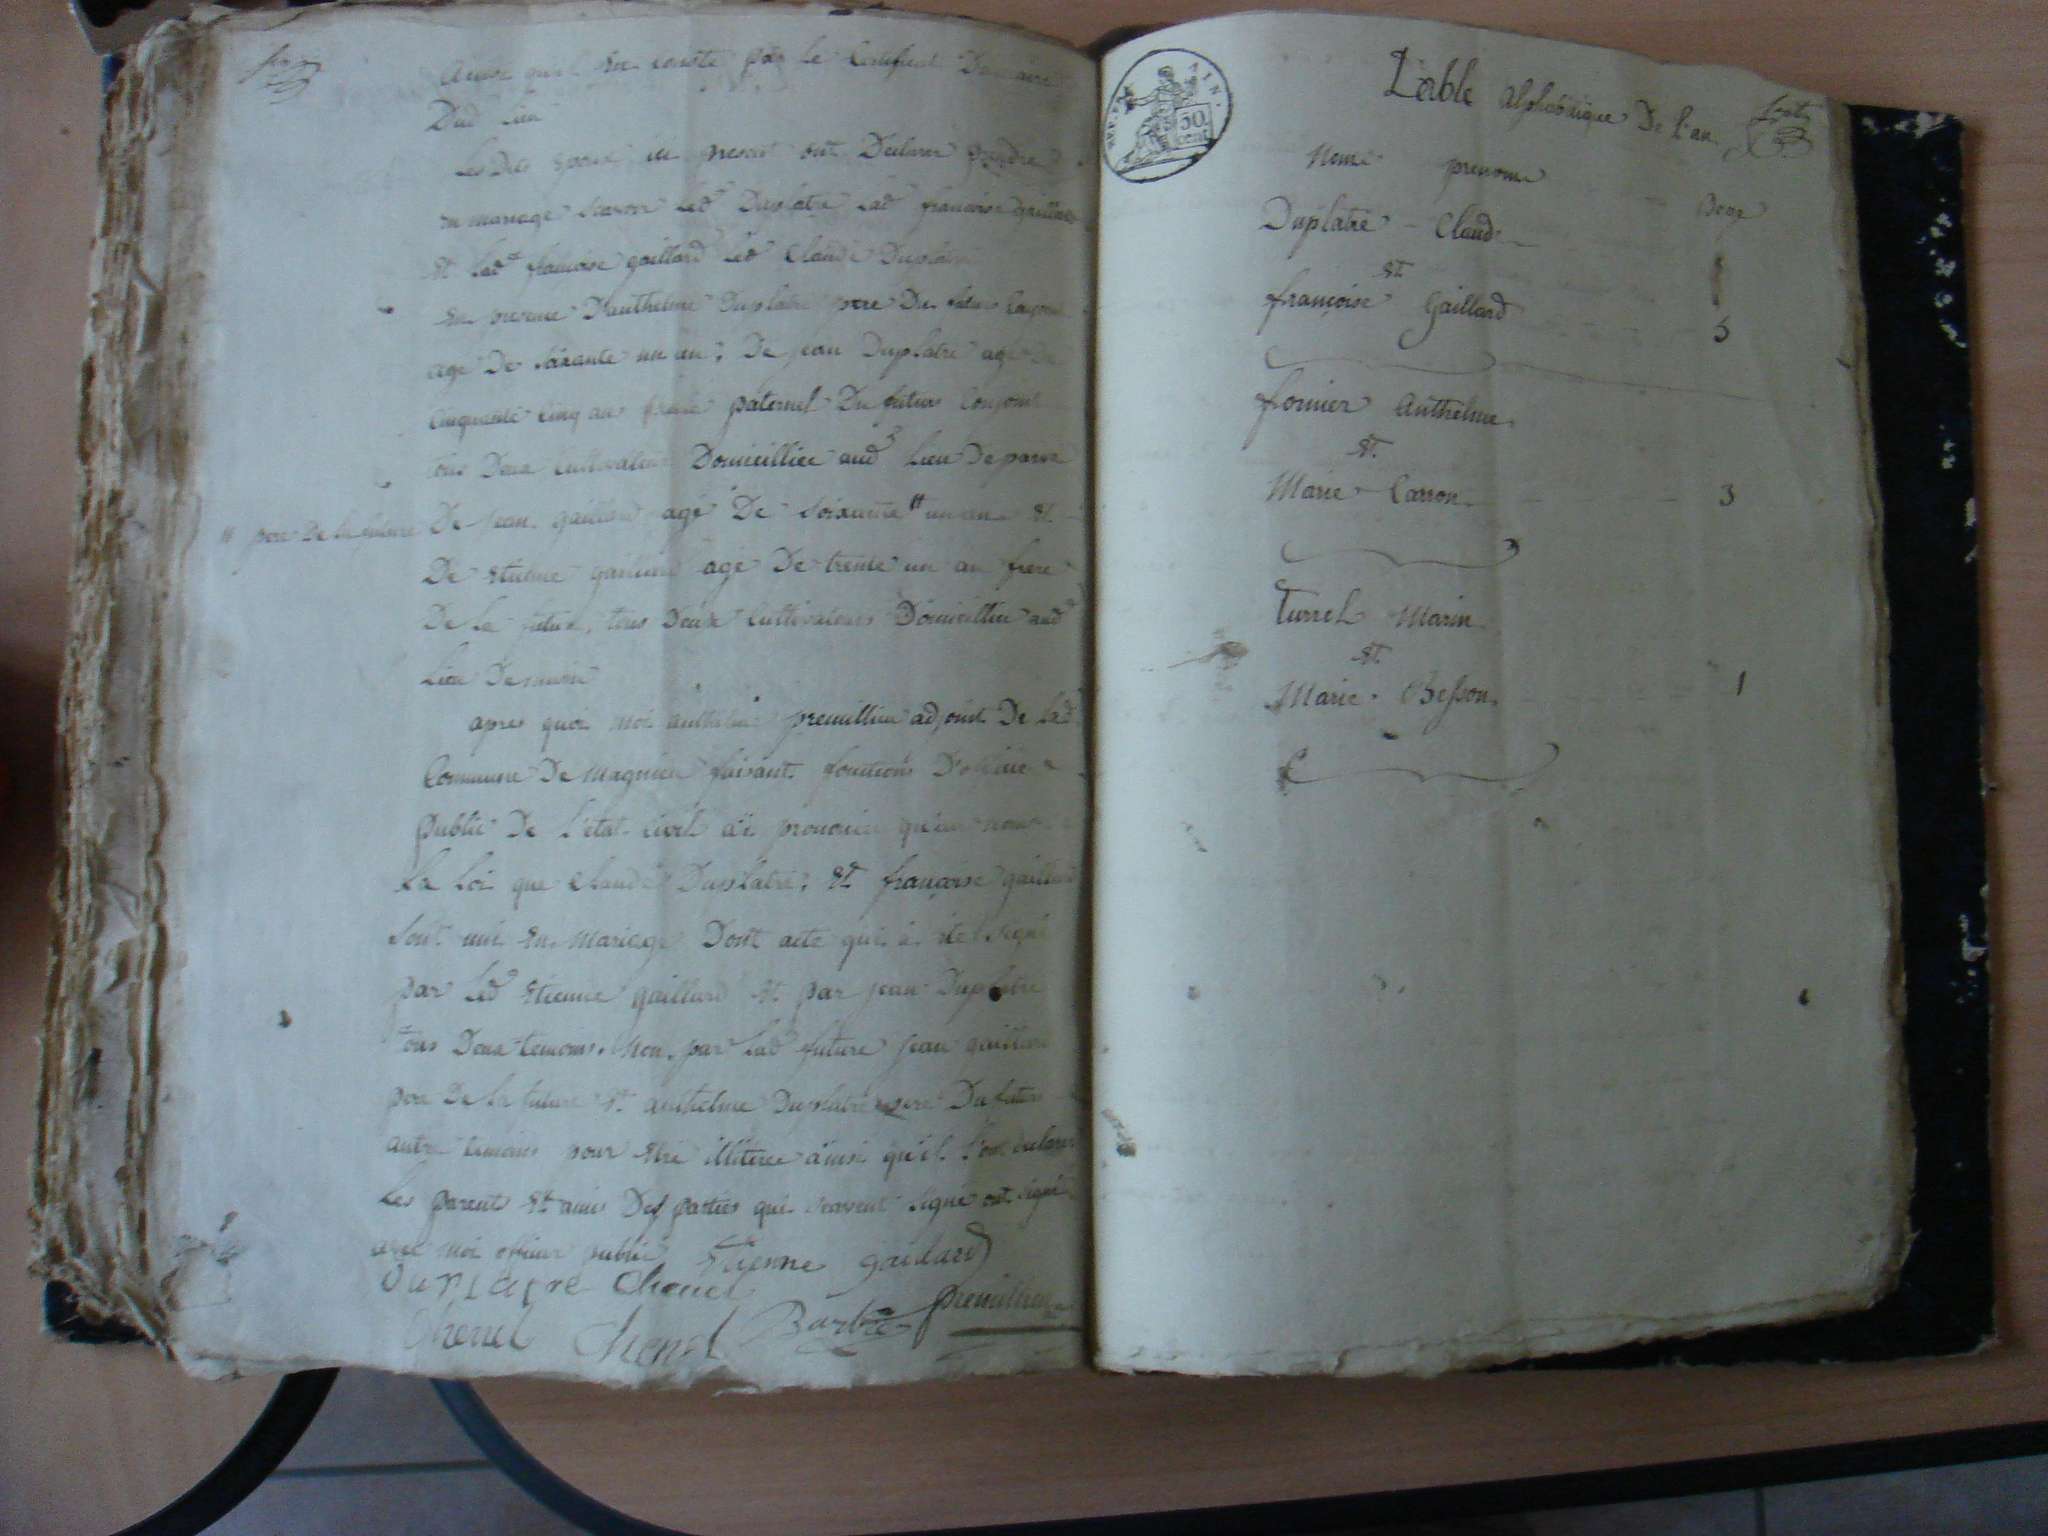 ainsi qu'il en conste par le Certificat Du maire
Dud lieu
Les Dits epoux ici present ont Declarer prendre
en mariage scavoir led Duplatre lad françoise gaillard
et lad.te françoise gaillard led Claude Duplatre
en presence D'anthelme Duplatre pere Du futur Conjoint
agé De soixante un an; De jean Duplatre agé De
Cinquante Cinq an paternel Du futur Conjoint
tous Deux Cultivateurs Domicilliee aud Lieu De
# pere De la future De jean gaillard agé De soixante # un an et
De etienne gaillard agé De trente un an frere
De la future, tous Deux Cultivateurs Domicillier aud
Lieu De
apres quoi moi anthelme premillieu adjoint De lad
Commune De Magnieu faisant fonctions D'officier
public De L'état Civil ai prononcer qu'au nom De
La Loi que Claude Duplatre, et françoise gaillard
sont uni en mariage Dont acte qui a été signé
par Led etienne gaillard et par jean Duplatre
tous Deux temoins. non par lad future jean gaillard
pere De la future et anthelme Duplatre pere Du futur
autre temoins pour etre illiteree ainsi qu'il l'ont declarer
Les parents et amis Des parties qui scavent signé ont signé
avec moi officier public Etienne gaillard
Duplatre Chenel
Chenel Chenel Barbier premillieu
AIN.
50
cent.
Table Alphabétique De l'an
Noms prenoms
Page
Duplatre - Claude
et
françoise Gaillard 5
fornier Anthelme
et
Marie Carron 3
Turrel Marin
et
Marie Besson 1